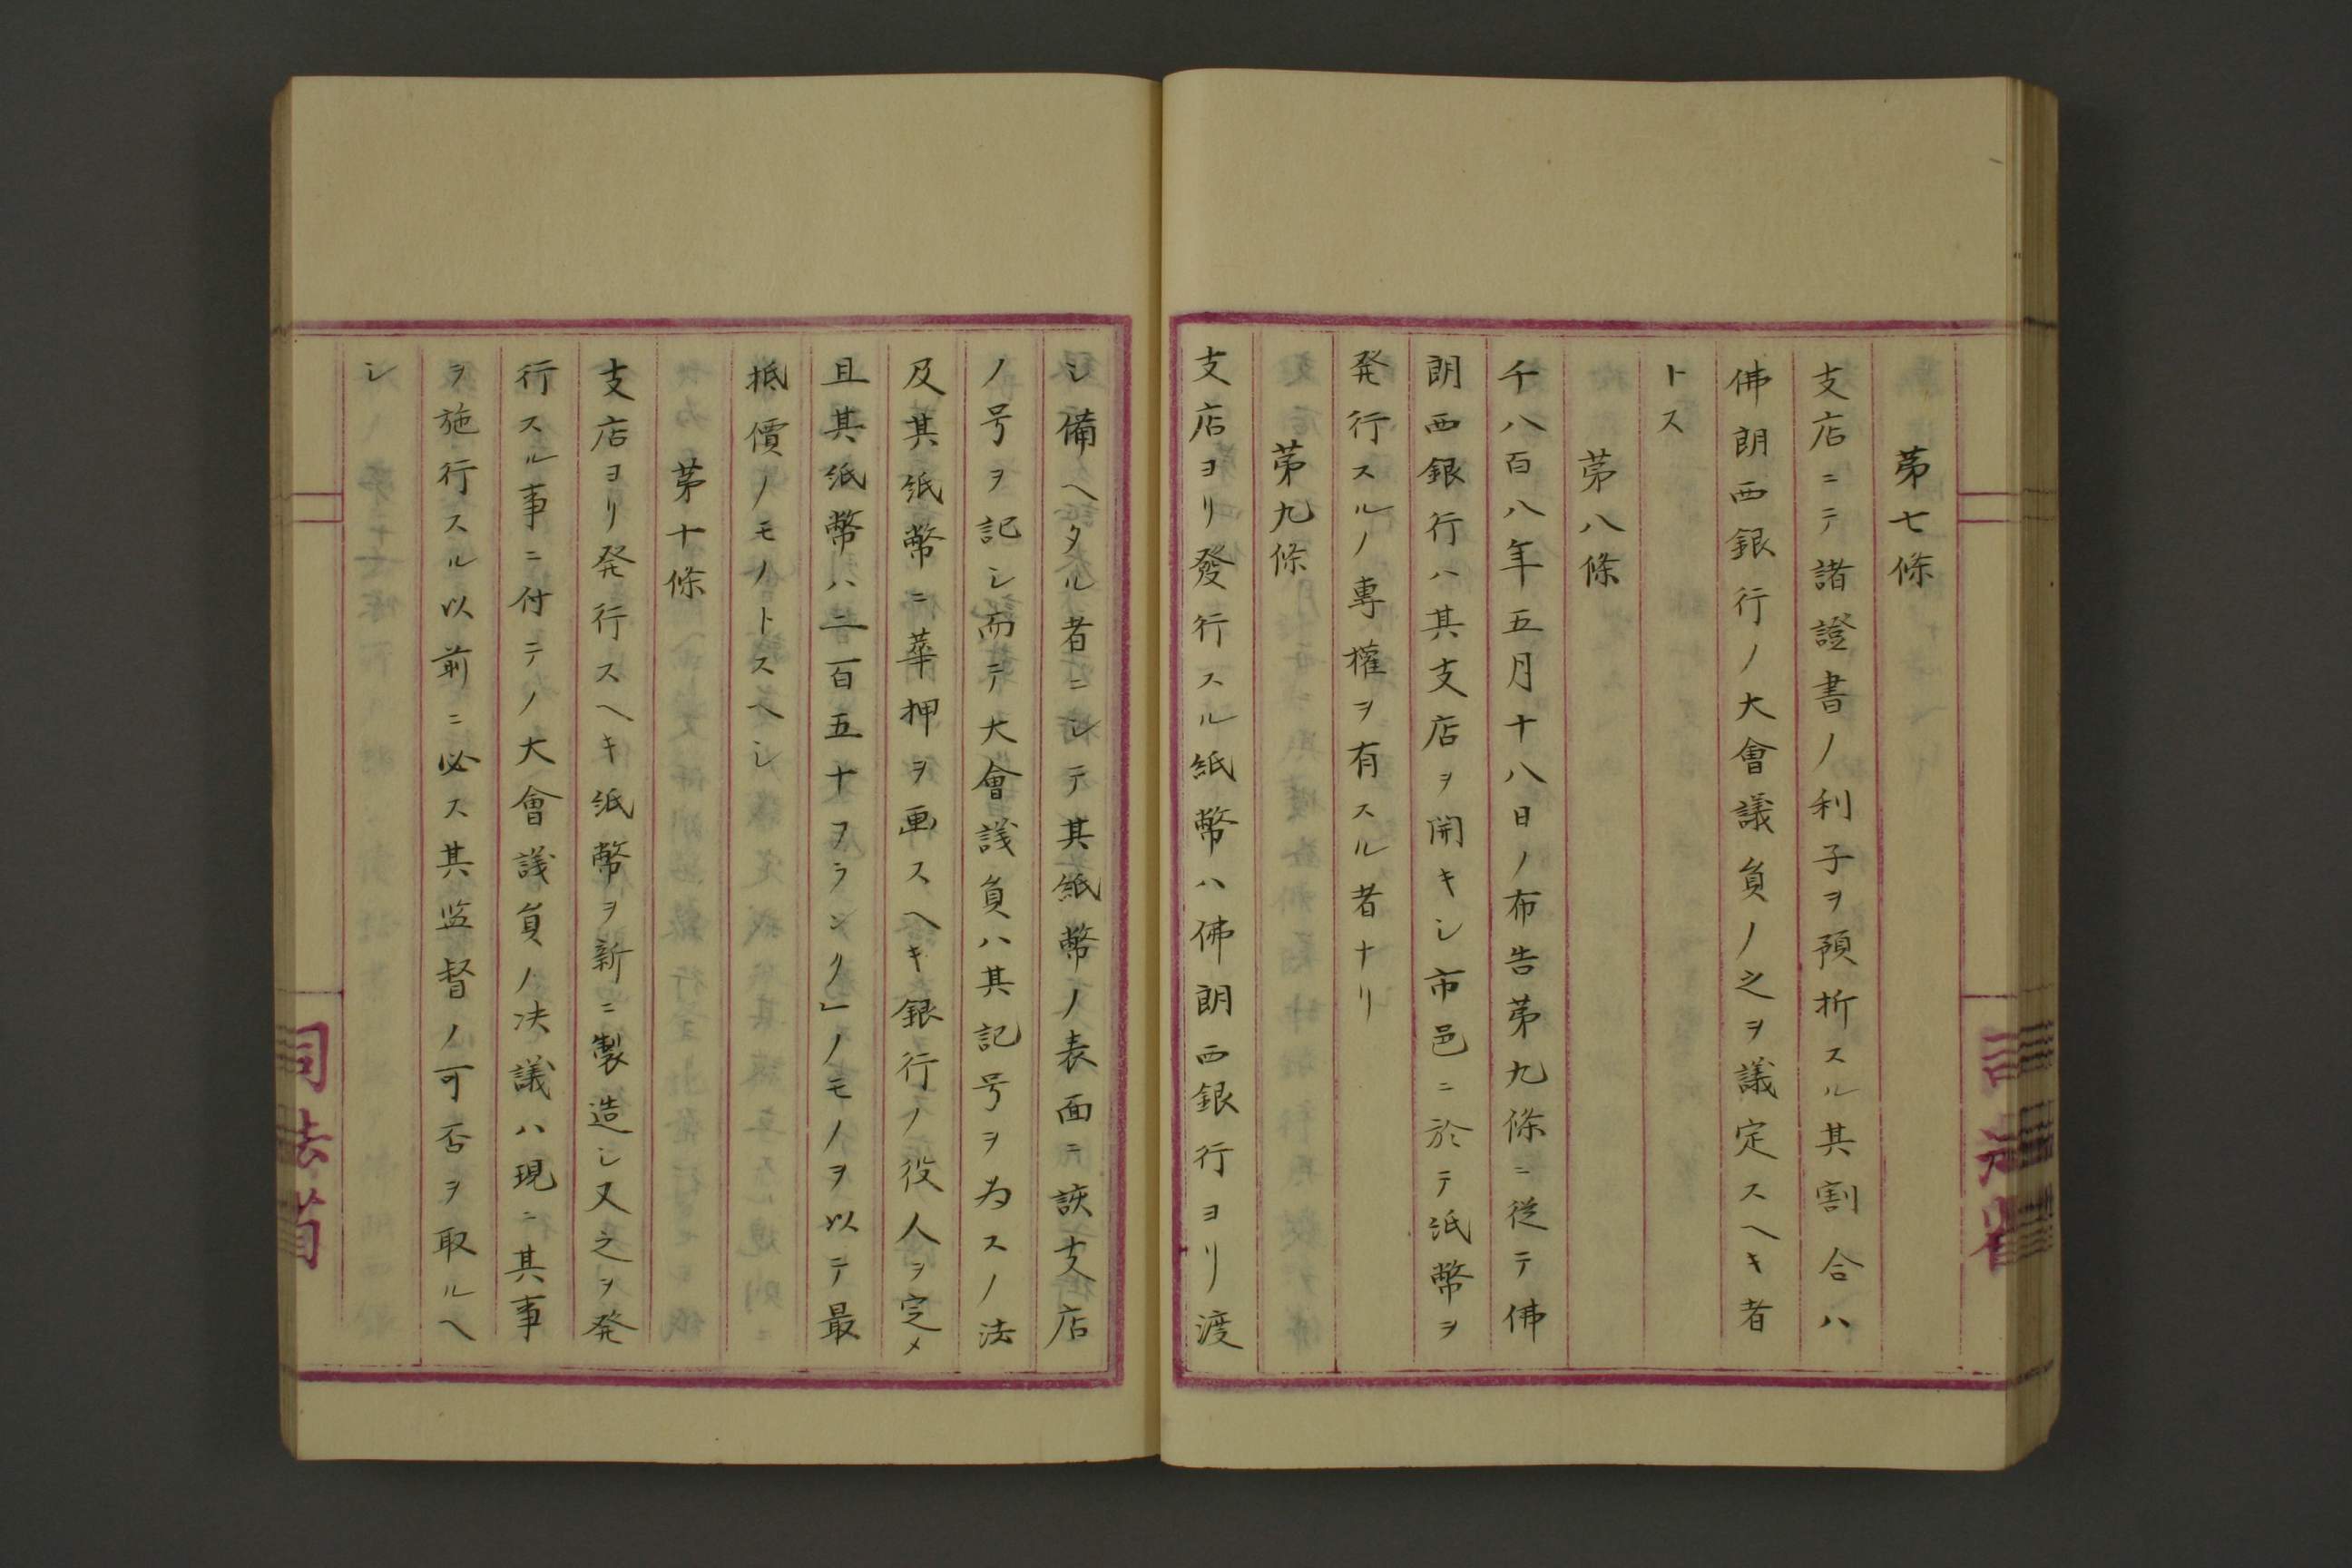 第七條
支店ニテ諸證書ノ利子ヲ預折スル其割合ハ
佛朗西銀行ノ大會議負ノ之ヲ議定スヘキ者
トス
第八條
千八百八年五月十八日ノ布告第九條ニ從テ佛
朗西銀行ハ其支店ヲ開キシ市邑ニ於テ紙幣ヲ
発行スルノ專權ヲ有スル者ナリ
第九條
支店ヨリ發行スル紙幣ハ佛朗西銀行ヨリ渡
シ備ヘタル者ニシテ其紙幣ノ表面ニ該支店
ノ号ヲ記シ而テ大會議負ハ其記号ヲ為スノ法
及其紙幣ニ華押ヲ画スヘキ銀行ノ役人ヲ定メ
且其紙幣ハ二百五十フランク」ノモノヲ以テ最
抵價ノモノトスヘシ
第十條
支店ヨリ発行スヘキ紙幣ヲ新ニ製造シ又之ヲ発
行スル事ニ付テノ大會議負ノ决議ハ現ニ其事
ヲ施行スル以前ニ必ス其监督ノ可否ヲ取ルヘ
シ
司法省